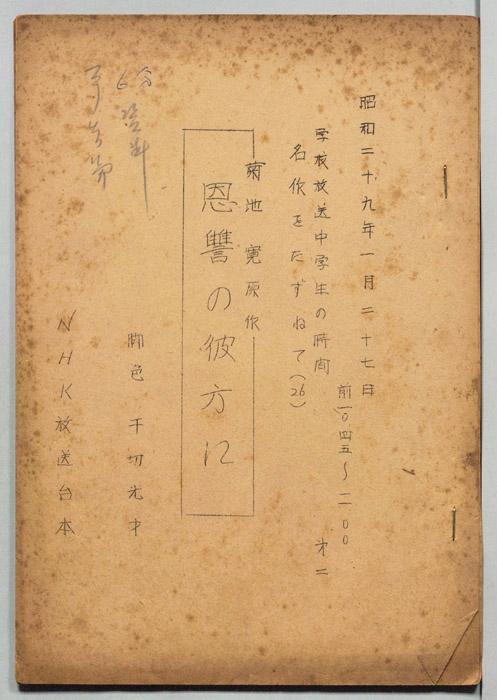 昭和二十九年一月二十七日
前一〇四五〜一一〇〇
学校放送中学生の時間
才二
名作をたずねて(26)
菊池寛原作
恩讐の彼方に
脚色 干切光才
NHK放送台本
資料